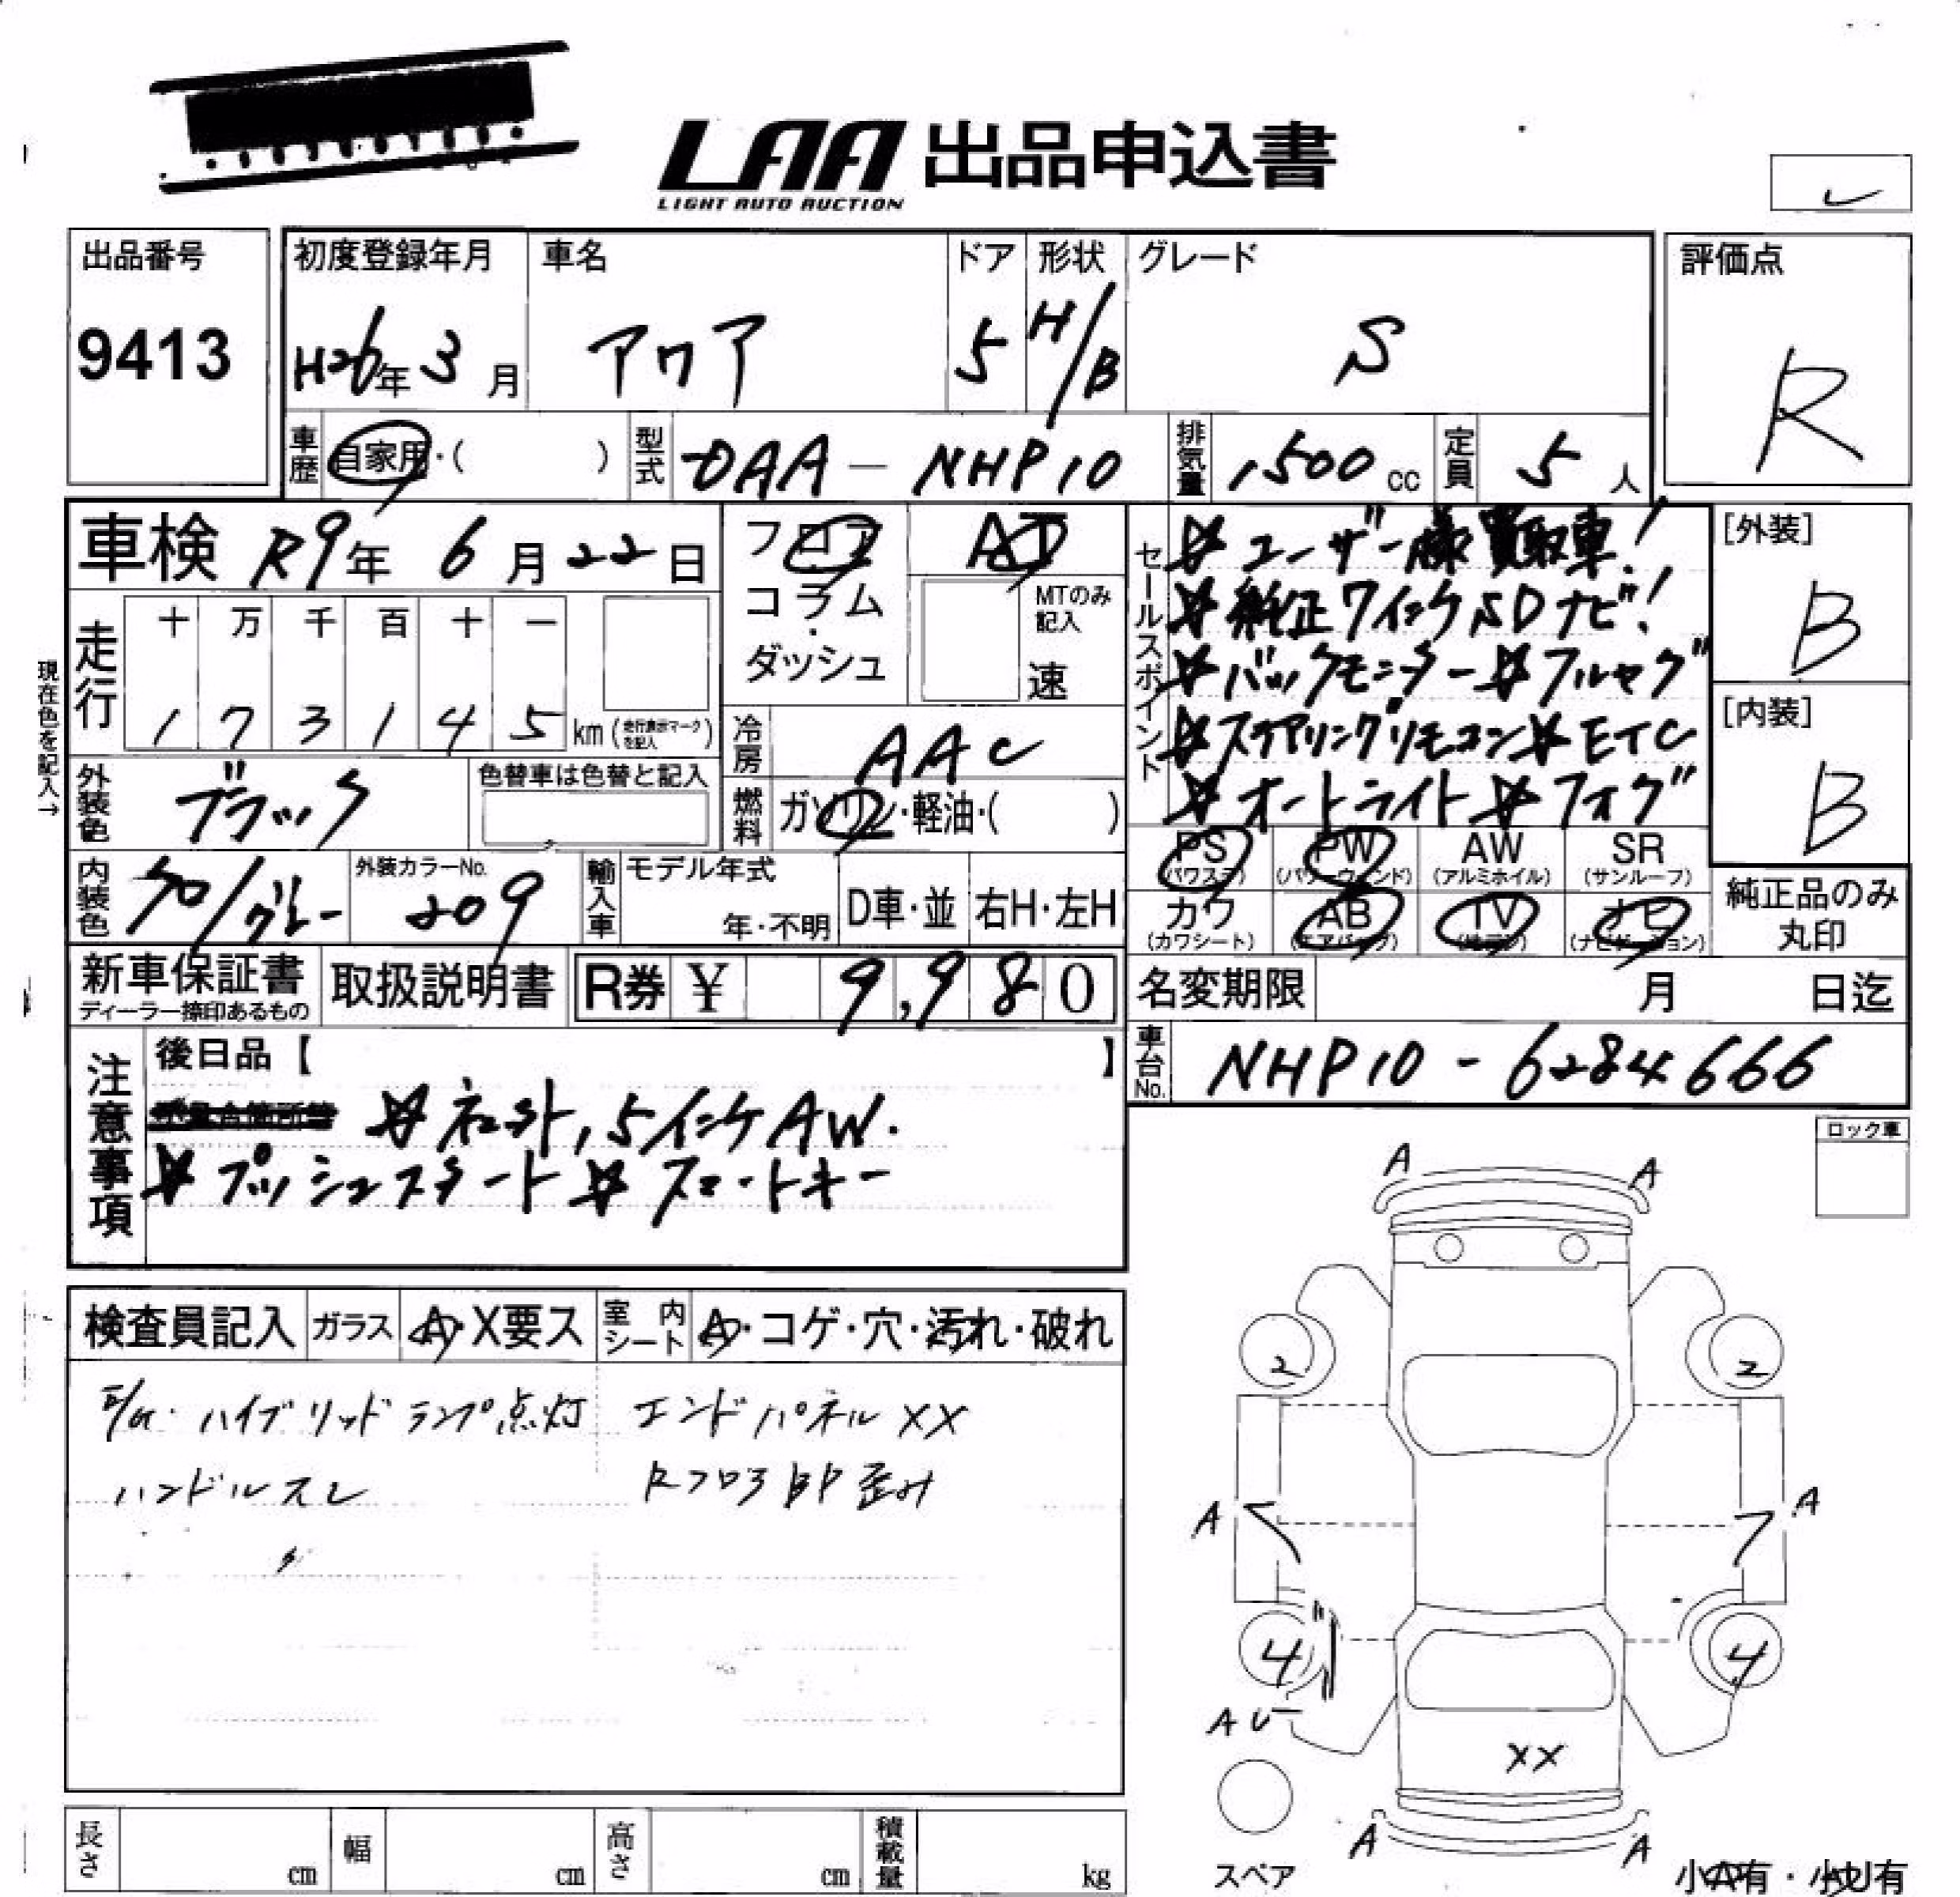 LAA 出品申込書
LIGHT AUTO AUCTION
出品番号
9413
初度登録年月
H26年 3月
車名
アクア
ドア
5
形状
H/B
グレード
S
評価点
R
車歴 自家用・( )
型式 DAA-NHP10
排気量 1500 cc
定員 5 人
車検 R9年 6月 22日
フロア
コラム
・
ダッシュ
AT
MTのみ記入
速
セールスポイント
☆ユーザー様買取車!
☆純正7インチSDナビ!
☆バックモニター☆フルセグ
☆ステアリングリモコン☆ETC
☆オートライト☆フォグ
[外装]
B
[内装]
B
現在色を記入→
走行
十 万 千 百 十 一
1 7 3 1 4 5 km (走行表示マークを記入)
冷房 AAC
燃料 ガソリン・軽油・( )
外装色 ブラック
色替車は色替と記入
内装色 クロ/グレー
外装カラーNo.
209
輸入車
モデル年式
年・不明
D車・並
右H・左H
PS (パワステ)
PW (パワーウィンド)
AW (アルミホイル)
SR (サンルーフ)
カワ (カワシート)
AB (エアバッグ)
TV (地デジ)
ナビ (ナビゲーション)
純正品のみ
丸印
新車保証書
ディーラー捺印あるもの
取扱説明書
R券 ¥ 9,980
名変期限 月 日迄
車台No. NHP10-6284666
注意事項
後日品【 】
☆社外15インチAW.
☆プッシュスタート☆スマートキー
ロック車
検査員記入
ガラス A・X要ス
室内シート A・コゲ・穴・汚れ・破れ
ハイブリッドランプ点灯
ハンドルスレ
エンドパネルXX
Rフロア BP 歪み
A A
2 2
A A
4 4
AU
XX
A A
スペア
小A有・小U有
長さ cm
幅 cm
高さ cm
積載量 kg